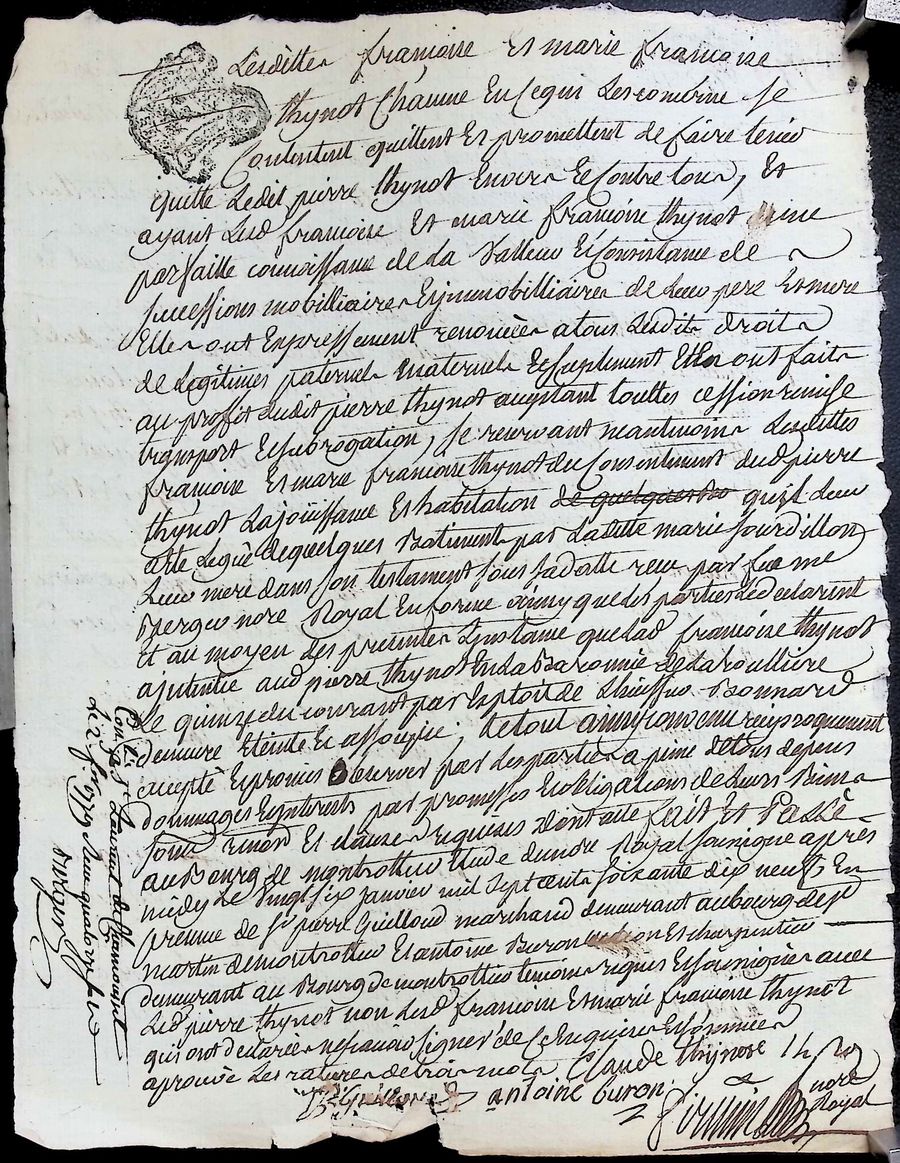 Lesdittes françoise Et marie françoise
thynot Chacune En Ce qui Les concerne Se
Contentent quittent Et promettent de faire tenir
quitte Ledit pierre thynot Envers Et Contre tous, Et
ayant Lesd françoise Et marie françoise thynot
parfaitte connoissance de La Valleur Et Consistance de
successions mobilliaires Et immobilliaires de Leur pere Et mere
Elles ont Expressement renoncées a tous Lesdits droits
de Legitimes paternels maternels Et supplement Elles ont faits
au proffit dudit pierre thynot acceptant touttes cession remise
transport Et subrogation, se reservant neantmoins Lesdittes
françoise Et marie françoise thynot du Consentement dud pierre
thynot La joüissance Et habitation de quelques qu'il Leur
a été Legué de quelques Batiments par Laditte marie Jourdillon
Leur mere dans son testament sous sa datte reçu par feu me
Berger nore Royal En forme ainsy que Les parties Le declarent
Et au moyen des presentes L'instance que Lad françoise thynot
a intentée aud pierre thynot En La Baronnie de La roulliere
Le quinze du courant par Exploit de L'huissier Bonnard
demeure Eteinte Et assoupie; Le tout ainsy convenu reciproquement
accepté Et promis observer par Les parties a peine de tous depens
dommages Et interests par promesses Et obligations de Leurs Biens
soum renon Et clauses requises dont acte fait Et Passé
au Bourg de montrottier Etude du nore Royal soussigné apres
midy Le Vingt six Janvier mil sept cent soixante dix neuf En
presence de Sr pierre Guilloud marchand demeurant au bourg de St
martin de montrottier Et antoine Buron Et charpentier
demeurant au Bourg de montrottier temoins requis Et soussignés avec
Led pierre thynot non Lesd françoise Et marie françoise thynot
qui ont declarées ne sçavoir signer de ce Enquises Et sommées
aprouvé Les ratures de trois mots Claude thynot
antoine buron
nore
Royal
Conlé
St Laurent de Chamousset
Le 2 1779 Reçu quatorze s